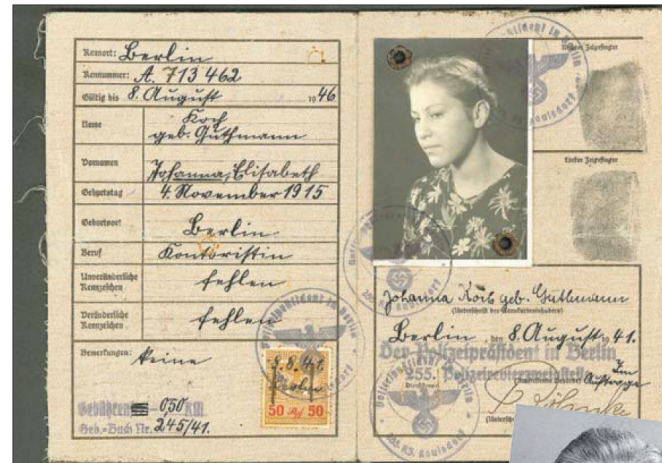 Kennort: Berlin
Kennummer: A. 713462
Gültig bis 8. August 1946
Name
Koch
geb. Guthmann
Vornamen
Johanna, Elisabeth
Geburtstag
4. November 1915
Geburtsort
Berlin
Beruf
Kontoristin
Unveränderliche
Kennzeichen
fehlen
Veränderliche
Kennzeichen
fehlen
Bemerkungen: Keine
Gebühren 0,50 RM.
Geb.=Buch Nr. 245/41.
8.8.41.
Berlin
50 Rpf 50
Rechter Zeigefinger
Linker Zeigefinger
Johanna Koch geb. Guthmann
(Unterschrift des Kennkarteninhabers)
Berlin, den 8. August 1941.
Der Polizeipräsident in Berlin
255. Polizeirevier
Im
Auftrage